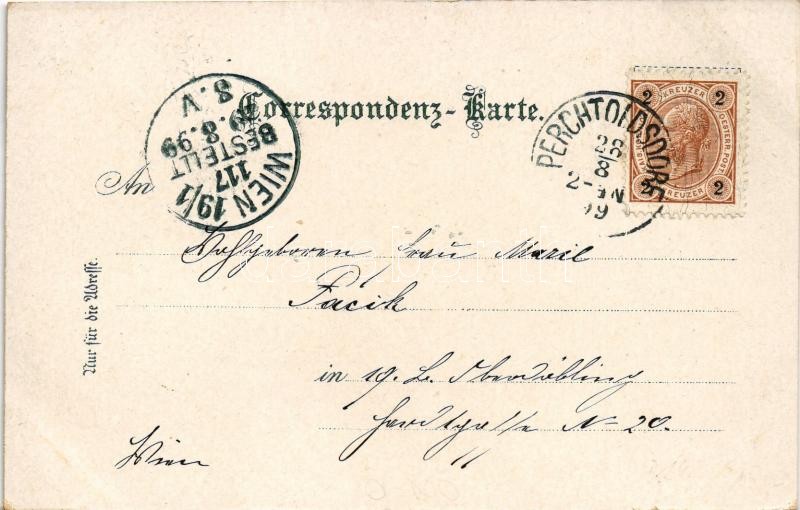 Correspondenz-Karte.
2 KREUZER 2
OESTERR. POST.
2 KREUZER 2
PERCHTOLDSDORF
28
8
2-5N
99
WIEN 19/1
117
BESTELLT
29.8.99
8.V
An
Wohlgeboren Frau Marie
Pacik
in 19. B. Oberdöbling
Hardtgasse N= 20.
Wien
Nur für die Adresse.